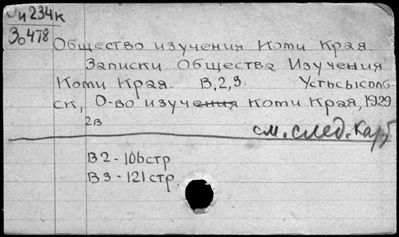 Ои 234к
30478
Общество изучения Коми Края.
Записки Общества Изучения
Коми Края. В,2,3. Устьсысоль-
ск, О-во изучения Коми Края, 1929
2в
см. след. карт
В2-106стр
В3-121стр.